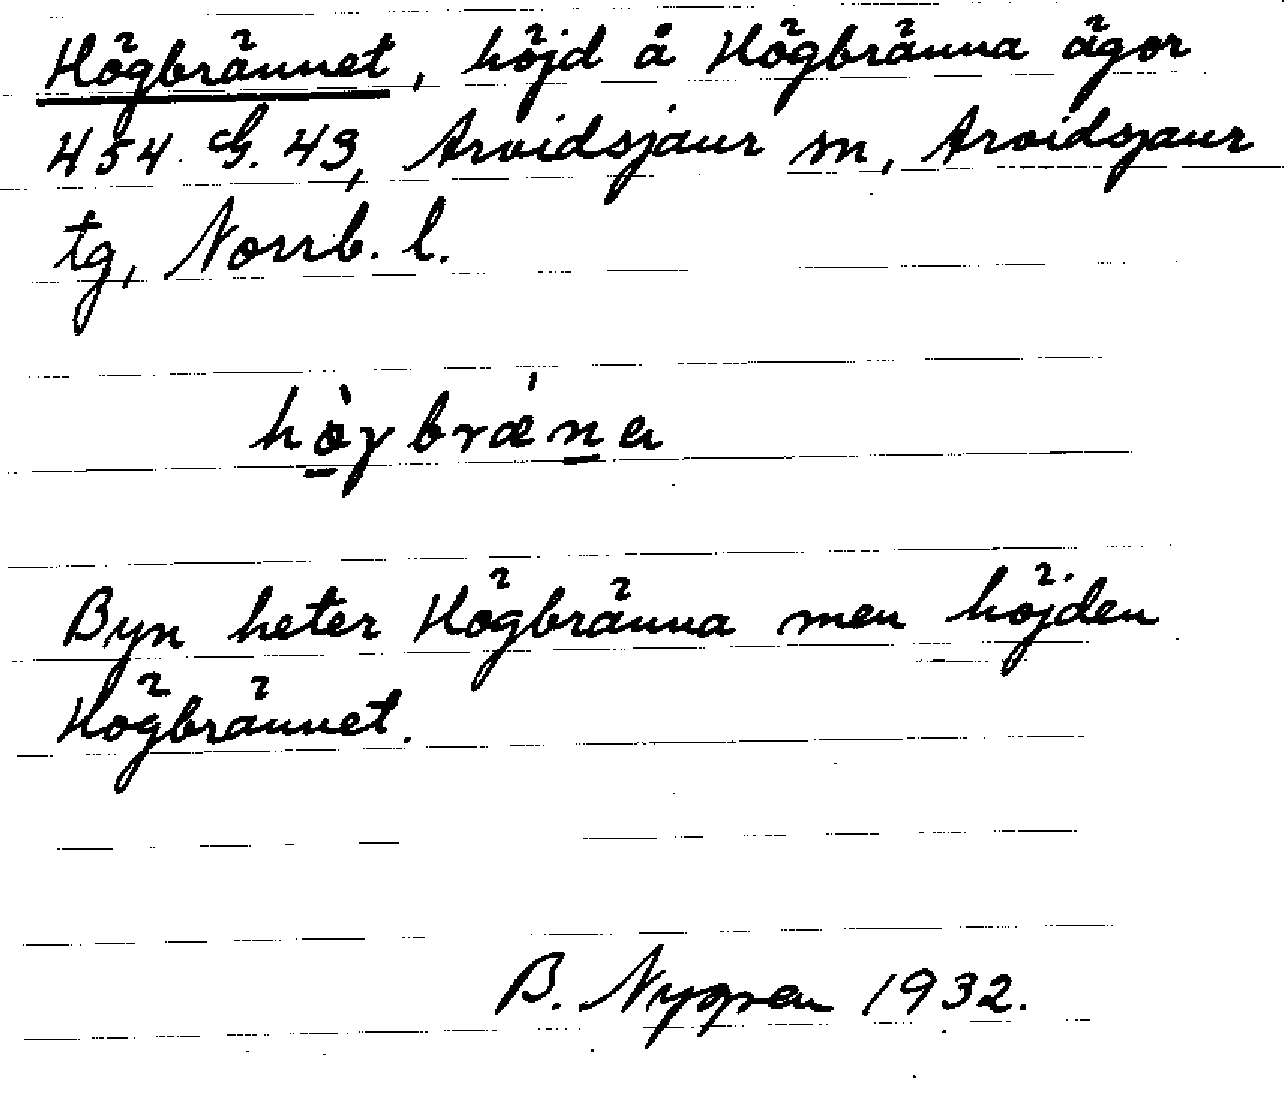 Högbrännet, höjd å Högbränna ägor
454 G. 43, Arvidsjaur sn, Arvidsjaur
tg, Norrb. l.
hògbræ'na
Byn heter Högbränna men höjden
Högbrännet.
B. Nygren 1932.